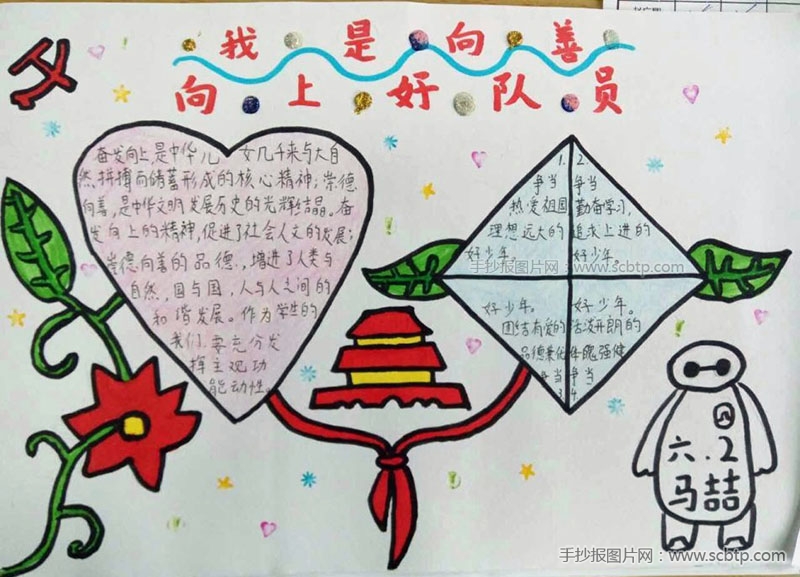 我是向善
向上好队员
奋发向上是中华儿女几千来与大自
然拼搏而储蓄形成的核心精神；崇德
向善，是中华文明发展历史的光辉结晶。奋
发向上的精神，促进了社会人文的发展；
崇德向善的品德，增进了人类与
自然，国与国，人与人之间的
和谐发展。作为学生的
我们，要充分发
挥主观功
能动性。
1.
争当
热爱祖国
理想远大的
好少年。
2.
争当
勤奋学习，
追求上进的
好少年。
好少年。
团结有爱的
品德兼优
争当
3.
好少年。
活泼开朗的
体魄强健
争当
4.
六.2
马喆
手抄报图片网：www.scbtp.com
手抄报图片网：www.scbtp.com